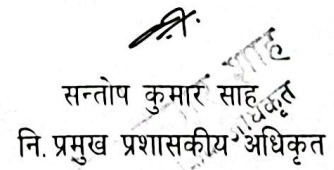 सन्तोष कुमार साह
नि. प्रमुख प्रशासकीय अधिकृत